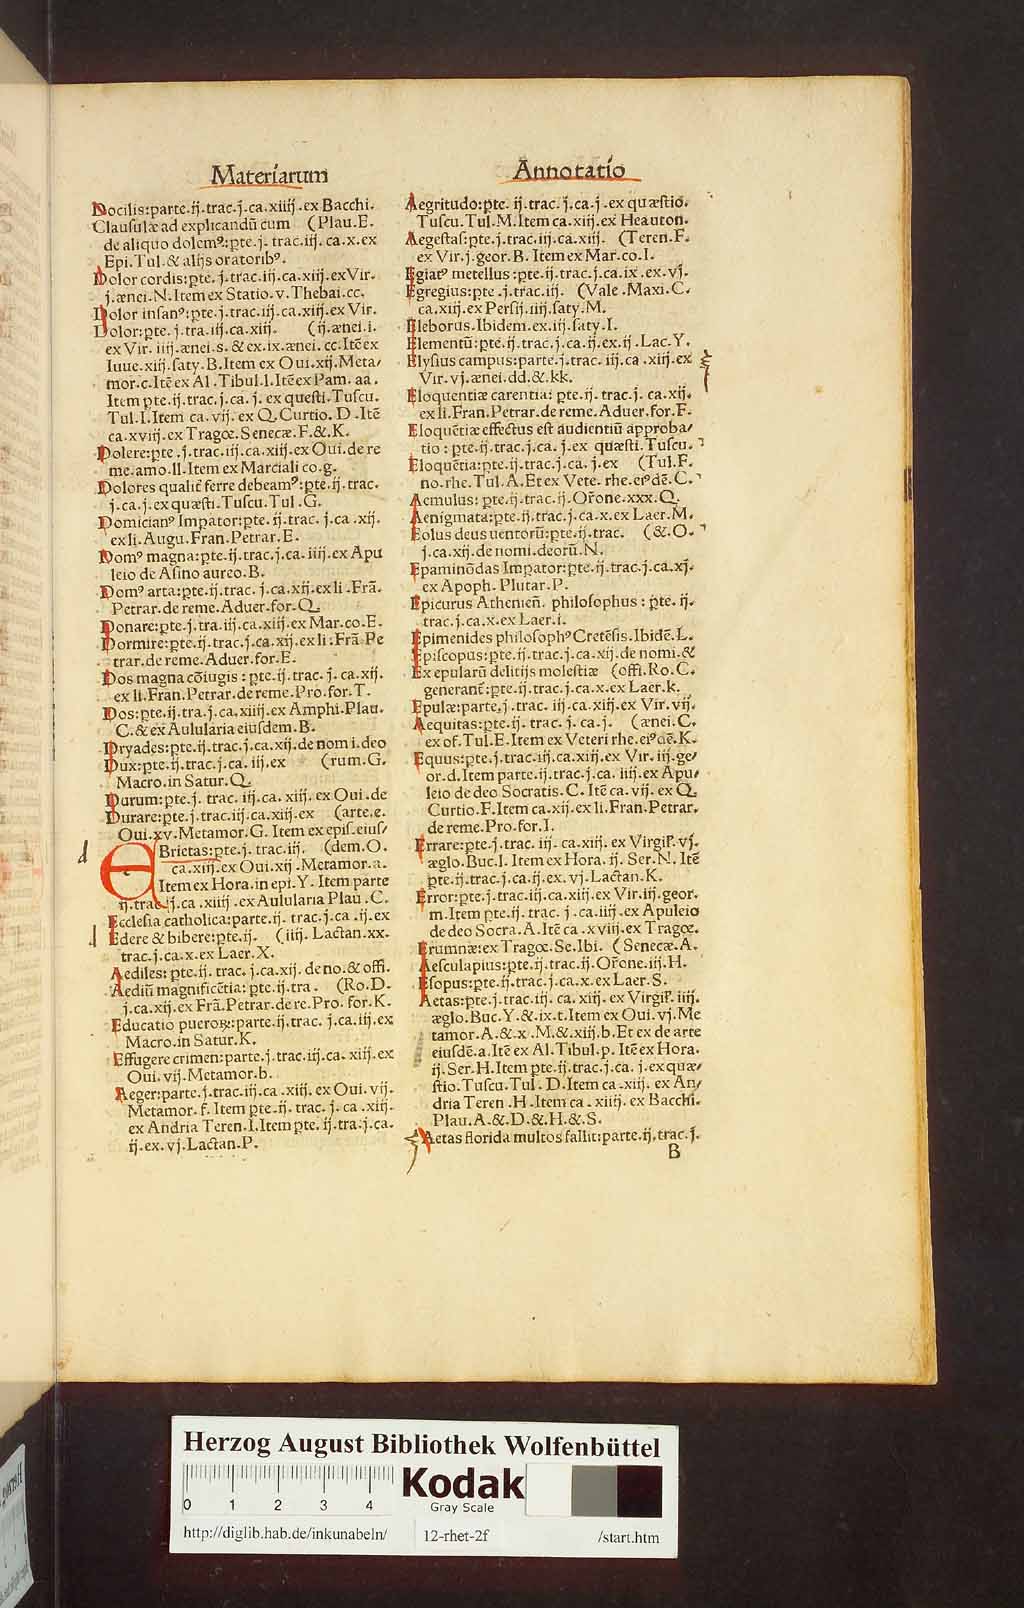 Materiarum
Docilis:parte.ij.trac.j.ca.xiiij.ex Bacchi.
Clausulæ ad explicandũ cum (Plau.E.
de aliquo dolemꝰ:pte.j.trac.iij.ca.x.ex
Epi.Tul.& alijs oratoribꝰ.
Dolor cordis:pte.j.trac.iij.ca.xiij.ex Vir.
j.ænei.N.Item ex Statio.v.Thebai.cc.
Dolor insanꝰ:pte.j.trac.iij.ca.xiij.ex Vir.
Dolor:pte.j.tra.iij.ca.xiij. (ij.ænei.i.
ex Vir.iiij.ænei.s.& ex.ix.ænei.cc.Itẽ ex
Iuue.xiij.saty.B.Item ex Oui.xij.Meta/
mor.c.Itẽ ex Al.Tibul.l.Itẽ ex Pam.aa.
Item pte.ij.trac.j.ca.j.ex questi.Tuscu.
Tul.I.Item ca.vij.ex Q.Curtio.D.Itẽ
ca.xviij.ex Tragœ.Senecæ.F.&.K.
Dolere:pte.j.trac.iij.ca.xiij.ex Oui.de re
me.amo.ll.Item ex Marciali co.g.
Dolores qualiť ferre debeamꝰ:pte.ij.trac.
j.ca.j.ex quæsti.Tuscu.Tul.G.
Domicianꝰ Impator:pte.ij.trac.j.ca.xij.
ex li.Augu.Fran.Petrar.E.
Domꝰ magna:pte.ij.trac.j.ca.iiij.ex Apu
leio de Asino aureo.B.
Domꝰ arta:pte.ij.trac.j.ca.xij.ex li.Frã.
Petrar.de reme.Aduer.for.Q.
Donare:pte.j.tra.iij.ca.xiij.ex Mar.co.E.
Dormire:pte.ij.trac.j.ca.xij.ex li:Frã Pe
trar.de reme.Aduer.for.E.
Dos magna cõiugis:pte.ij.trac.j.ca.xij.
ex li.Fran.Petrar.de reme.Pro.for.T.
Dos:pte.ij.tra.j.ca.xiiij.ex Amphi.Plau.
C.& ex Aulularia eiusdem.B.
Dryades:pte.ij.trac.j.ca.xij.de nomi.deo
Dux:pte.ij.trac.j.ca.iij.ex (rum.G.
Macro.in Satur.Q.
Durum:pte.j.trac.iij.ca.xiij.ex Oui.de
Durare:pte.j.trac.iij.ca.xiij.ex (arte.e.
Oui.xv.Metamor.G.Item ex epis.eius/
EBrietas:pte.j.trac.iij. (dem.O.
ca.xiij.ex Oui.xij.Metamor.a.
Item ex Hora.in epi.Y.Item parte
ij.trac.j.ca.xiiij.ex Aulularia Plau.C.
Ecclesia catholica:parte.ij.trac.j.ca.ij.ex
Edere & bibere:pte.ij. (iiij.Lactan.xx.
trac.j.ca.x.ex Laer.X.
Aediles:pte.ij.trac.j.ca.xij.de no.& offi.
Aediũ magnificẽtia:pte.ij.tra. (Ro.D.
j.ca.xij.ex Frã.Petrar.de re.Pro.for.K.
Educatio pueroꝝ:parte.ij.trac.j.ca.iij.ex
Macro.in Satur.K.
Effugere crimen:parte.j.trac.iij.ca.xiij.ex
Oui.vij.Metamor.b.
Aeger:parte.j.trac.iij.ca.xiij.ex Oui.vij.
Metamor.f.Item pte.ij.trac.j.ca.xiij.
ex Andria Teren.I.Item pte.ij.tra.j.ca.
ij.ex.vj.Lactan.P.
Annotatio
Aegritudo:pte.ij.trac.j.ca.j.ex quæstio.
Tuscu.Tul.M.Item ca.xiij.ex Heauton.
Aegestas:pte.j.trac.iij.ca.xiij. (Teren.F.
ex Vir.j.geor.B.Item ex Mar.co.I.
Egiatꝰ metellus:pte.ij.trac.j.ca.ix.ex.vj.
Egregius:pte.j.trac.iij. (Vale.Maxi.C.
ca.xiij.ex Persij.iiij.saty.M.
Eleborus.Ibidem.ex.iij.saty.I.
Elementũ:pte.ij.trac.j.ca.ij.ex.ij.Lac.Y.
Elysius campus:parte.j.trac.iij.ca.xiij.ex
Vir.vj.ænei.dd.&.kk.
Eloquentiæ carentia:pte.ij.trac.j.ca.xij.
ex li.Fran.Petrar.de reme.Aduer.for.F.
Eloquẽtiæ effectus est audientiũ approba/
tio:pte.ij.trac.j.ca.j.ex quæsti.Tuscu.
Eloquẽtia:pte.ij.trac.j.ca.j.ex (Tul.F.
no.rhe.Tul.A.Et ex Vete.rhe.eiꝰdẽ.C.
Aemulus:pte.ij.trac.ij.Or̃one.xxx.Q.
Aenigmata:pte.ij.trac.j.ca.x.ex Laer.M.
Eolus deus uentorũ:pte.ij.trac. (&.O.
j.ca.xij.de nomi.deorũ.N.
Epaminõdas Impator:pte.ij.trac.j.ca.xj.
ex Apoph.Plutar.P.
Epicurus Athenieñ.philosophus:pte.ij.
trac.j.ca.x.ex Laer.i.
Epimenides philosophꝰ Cretẽsis.Ibidẽ.L.
Episcopus:pte.ij.trac.j.ca.xij.de nomi.&
Ex epularũ delitijs molestiæ (offi.Ro.C.
generanť:pte.ij.trac.j.ca.x.ex Laer.k.
Epulæ:parte.j.trac.iij.ca.xiij.ex Vir.vij.
Aequitas:pte.ij.trac.j.ca.j. (ænei.C.
ex of.Tul.E.Item ex Veteri rhe.eiꝰdẽ.K.
Equus:pte.j.trac.iij.ca.xiij.ex Vir.iij.ge/
or.d.Item parte.ij.trac.j.ca.iiij.ex Apu/
leio de deo Socratis.C.Itẽ ca.vij.ex Q.
Curtio.F.Item ca.xij.ex li.Fran.Petrar.
de reme.Pro.for.I.
Errare:pte.j.trac.iij.ca.xiij.ex Virgiľ.vj.
æglo.Buc.I.Item ex Hora.ij.Ser.N.Itẽ
pte.ij.trac.j.ca.ij.ex.vj.Lactan.K.
Error:pte.j.trac.iij.ca.xiij.ex Vir.iij.geor.
m.Item pte.ij.trac.j.ca.iiij.ex Apuleio
de deo Socra.A.Itẽ ca.xviij.ex Tragœ.
Erumnæ:ex Tragœ.Se.Ibi. (Senecæ.A.
Aesculapius:pte.ij.trac.ij.Or̃one.iij.H.
Esopus:pte.ij.trac.j.ca.x.ex Laer.S.
Aetas:pte.j.trac.iij.ca.xiij.ex Virgiľ.iiij.
æglo.Buc.Y.&.ix.t.Item ex Oui.vj.Me
tamor.A.&.x.M.&.xiij.b.Et ex de arte
eiusdẽ.a.Itẽ ex Al.Tibul.p.Itẽ ex Hora.
ij.Ser.H.Item pte.ij.trac.j.ca.j.ex quæ/
stio.Tuscu.Tul.D.Item ca.xiij.ex An/
dria Teren.H.Item ca.xiiij.ex Bacchi.
Plau.A.&.D.&.H.&.S.
Aetas florida multos fallit:parte.ij.trac.j.
B
Herzog August Bibliothek Wolfenbüttel
0 1 2 3 4
Kodak
Gray Scale
http://diglib.hab.de/inkunabeln/ 12-rhet-2f /start.htm